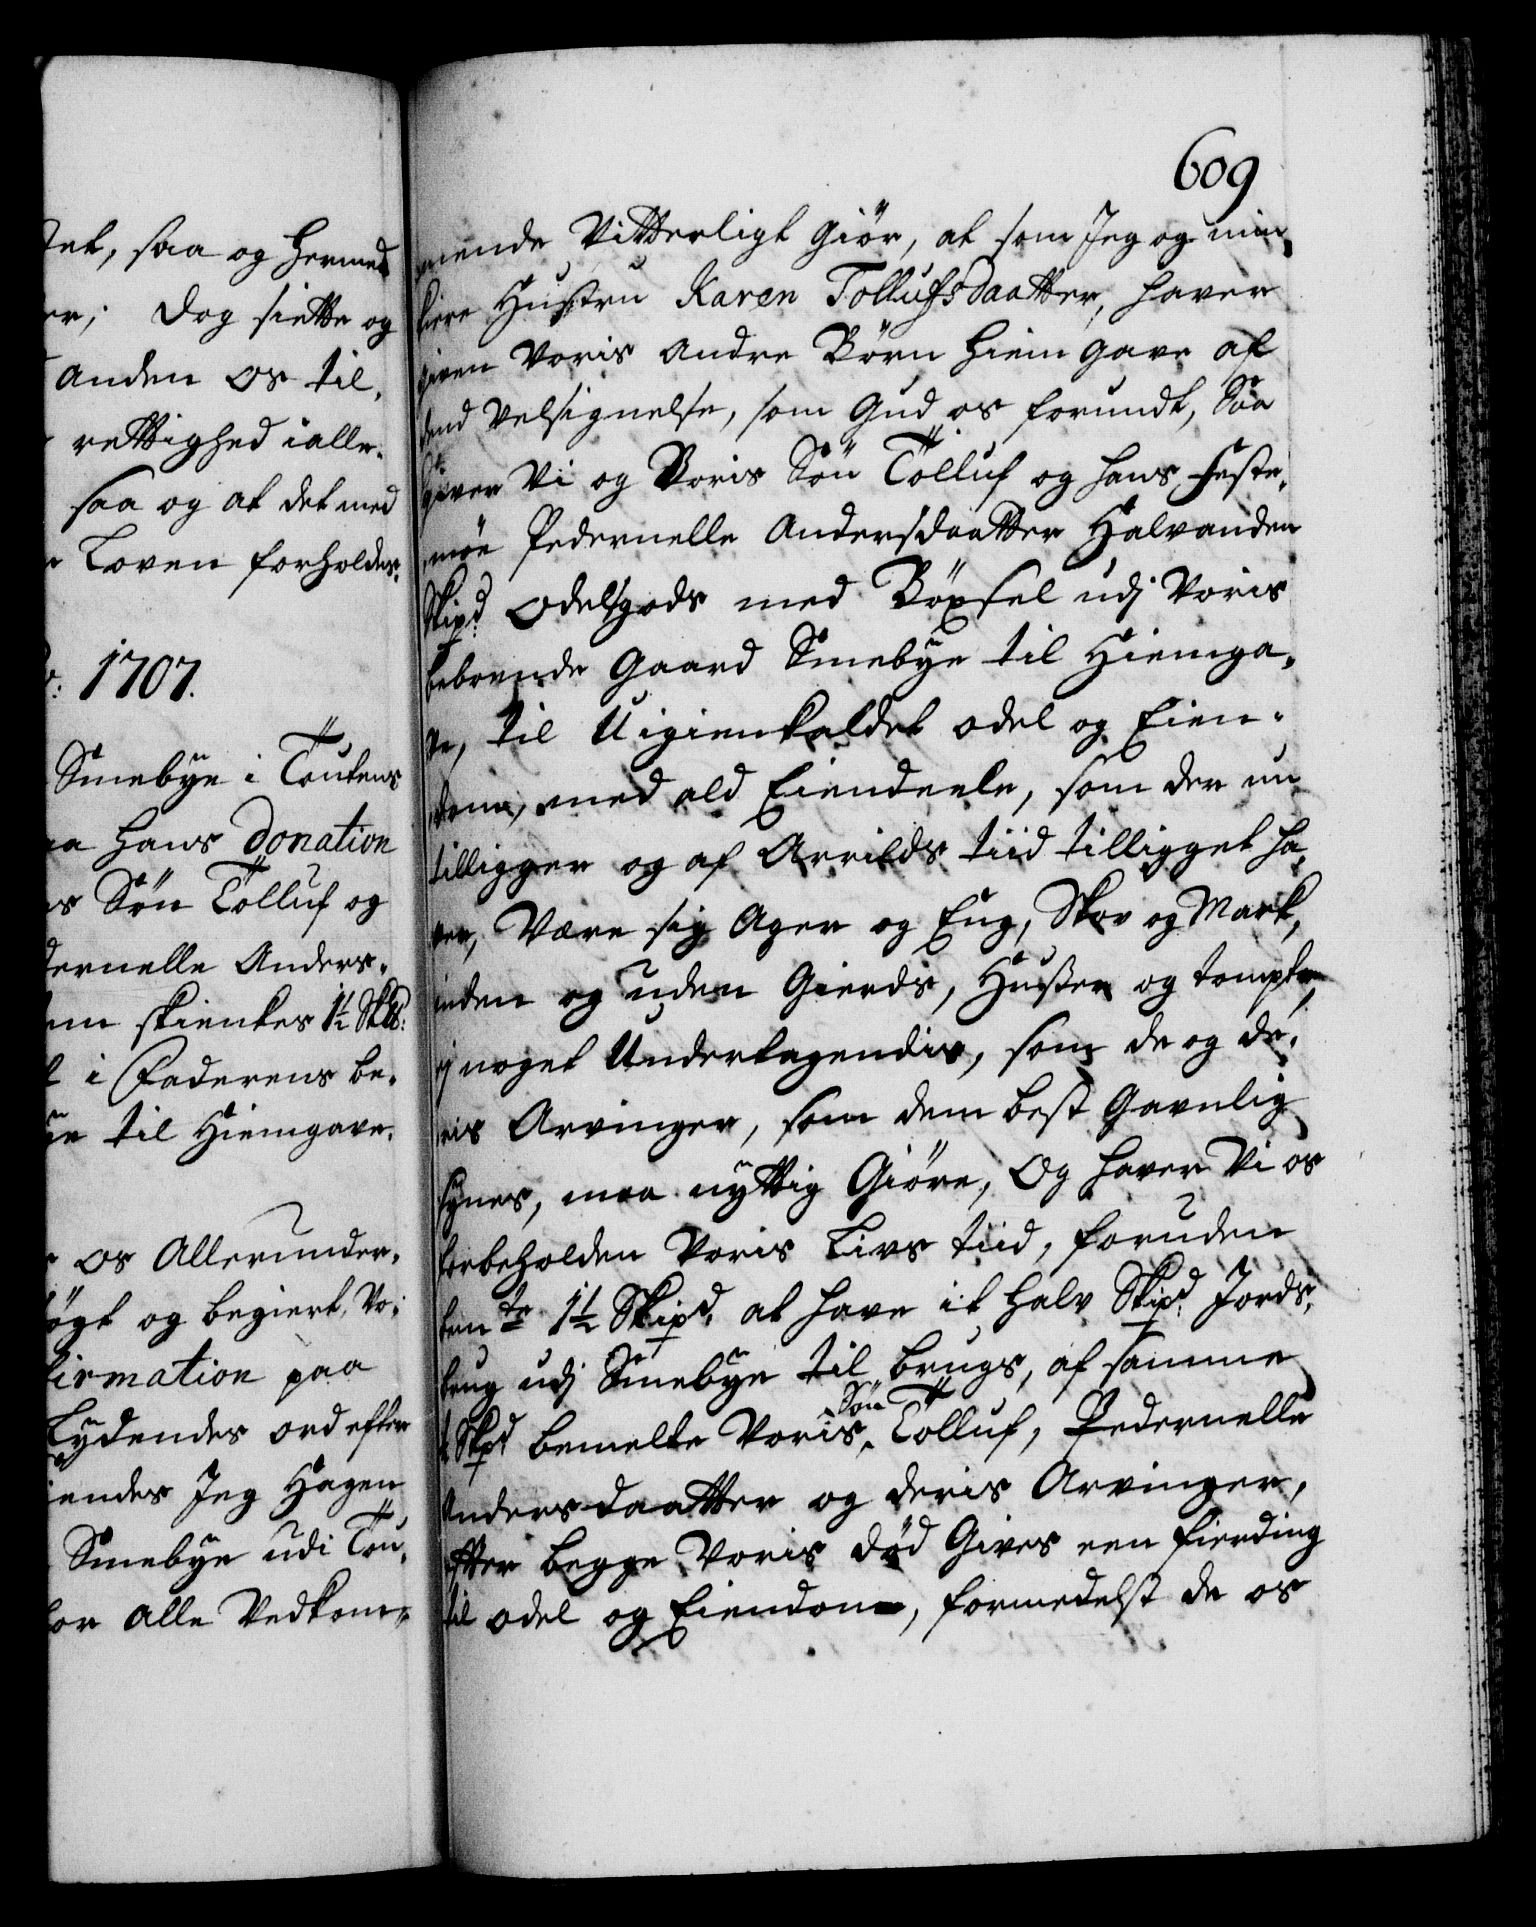 tet, saa og hermed
er; Dog siette og
Anden os til,
rettighed i alle.
saa og at det med
Loven forholdes.
1707.
Smebye i Toutens
hans Donation
s Søn Tolluf og
dernelle Anders-
em skienkes 1½ Sk℔:
i Faderens be-
ye til Hiemgave.
os Allerunder-
øgt og begiert, Vo-
firmation paa
Lydendes ord efter
iendes Jeg Hagen
Smebye udi Tou-
for alle Vedkom-
609
mende Vitterligt giør, at som Jeg og min
kiere Hustru Karen Tollufsdaatter, haver
given Voris Andre Børn Hiemgave af
dend Velsignelse, som Gud os forundt, Saa
giver Vi og Voris Søn Tolluf og hans Feste-
møe Pedernelle Andersdaatter Halvanden
Skipd: Odelsgods med Böxsel udj Voris
beboende Gaard Smebye til Hiemga-
ve, til Uigienkaldet odel og Eien-
dom, med ald Eiendeele, som der nu
tilligger og af Arrilds tiid tilligget ha-
ver, Være sig Ager og Eng, Skov og Mark,
inden og uden Gierds, Husser og tompter,
ej noget Undertagendis, som de og de-
ris Arvinger, som dem best Gavnlig
synes, maa nyttig Giøre, Og haver Vi os
forbeholden Voris Livs tiid, foruden
bem.te 1½ Skipd. at have it halv Skipd: Jords-
brug udj Smebye til brugs, af samme
½ Skpd bemelte Voris Søn Tolluf, Pedernelle
Andersdaatter og deris Arvinger,
efter begge Voris død Gives een fierding
til odel og Eiendom, formedelst de os